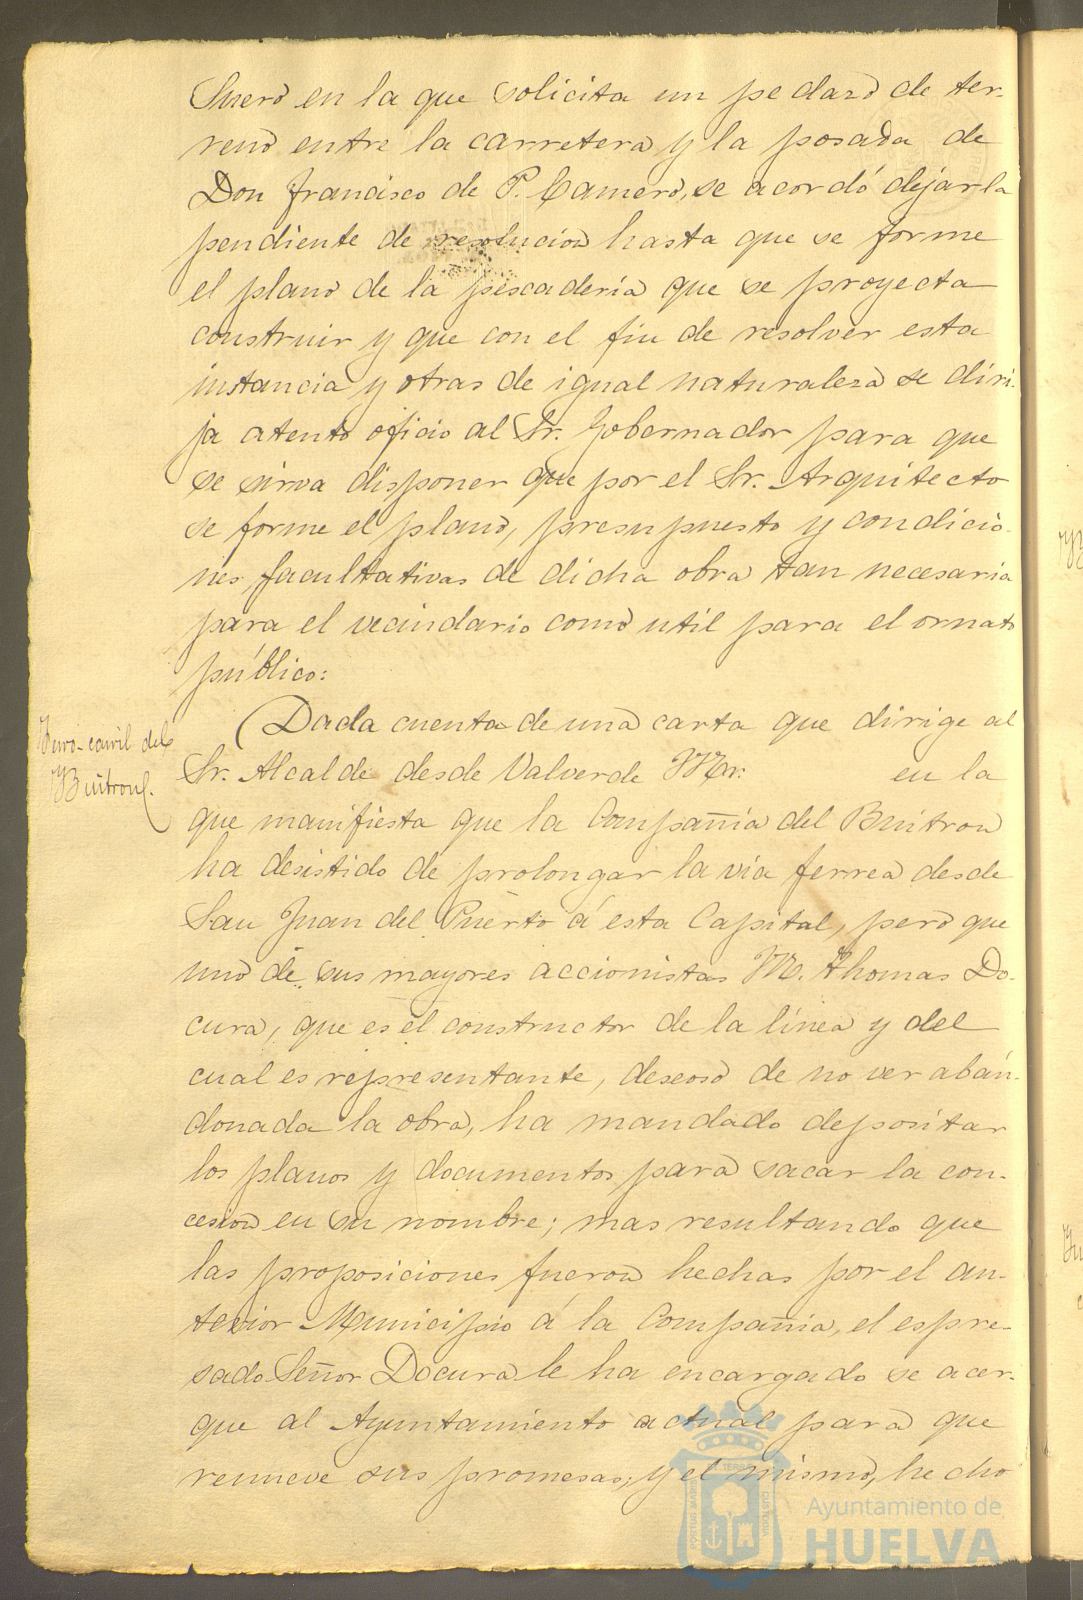 Suero en la que solicita un pedazo de ter-
reno entre la carretera y la posada de
Don Francisco de P. Camero, se acordó dejarla
pendiente de resolucion hasta que se forme
el plano de la pescaderia que se proyecta
construir y que con el fin de resolver esta
instancia y otras de igual naturaleza se diri-
ja atento oficio al Sr. Gobernador para que
se sirva disponer que por el Sr. Arquitecto
se forme el plano, presupuesto y condicio-
nes facultativas de dicha obra tan necesaria
para el vecindario como util para el ornato
público:
Ferro-carril del
Buitron.
Dada cuenta de una carta que dirige al
Sr. Alcalde desde Valverde Mr. en la
que manifiesta que la Compañia del Buitron
ha desistido de prolongar la via ferrea desde
San Juan del Puerto á esta Capital, pero que
uno de sus mayores accionistas M. Thomas Do-
cura, que es el constructor de la línea y del
cual es representante, deseoso de no ver aban-
donada la obra, ha mandado depositar
los planos y documentos para sacar la con-
cesion en su nombre; mas resultando que
las proposiciones fueron hechas por el an-
terior Municipio á la Compañia, el espre-
sado Señor Docura le ha encargado se acer-
que al Ayuntamiento actual para que
renueve sus promesas; y el mismo, hecho
Ayuntamiento de
HUELVA